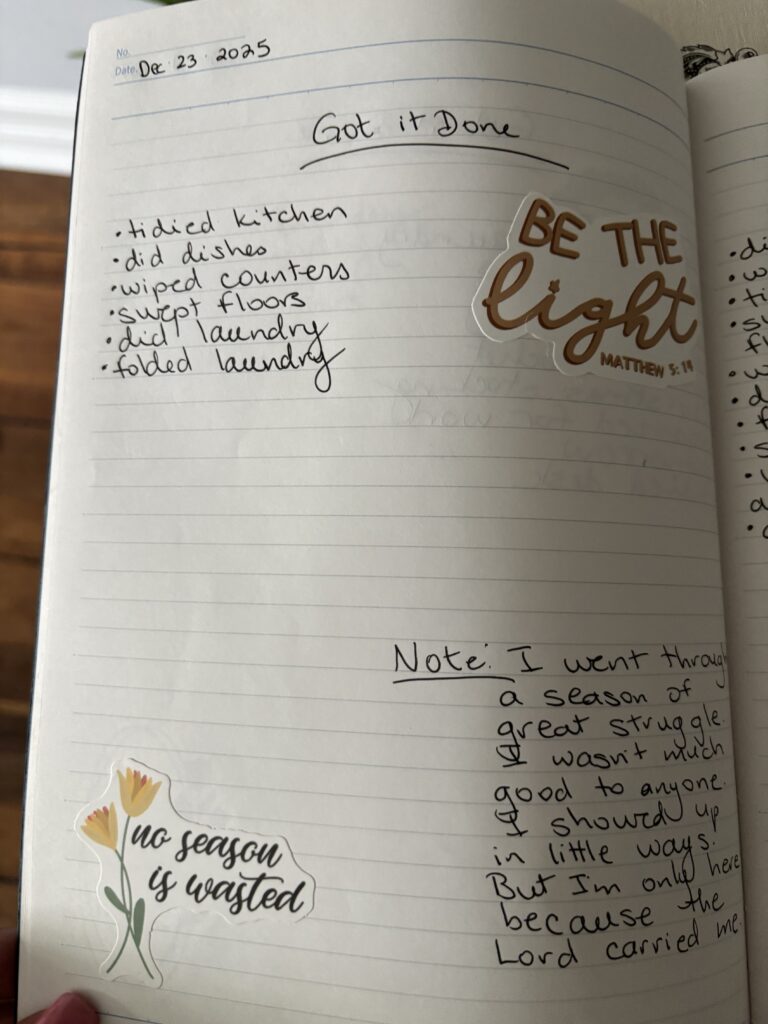 No.
Date. Dec 23 · 2025
Got it Done
• tidied kitchen
• did dishes
• wiped counters
• swept floors
• did laundry
• folded laundry
BE THE
light
MATTHEW 5:14
Note: I went through
a season of
great struggle.
I wasn't much
good to anyone.
I showed up
in little ways.
But I'm only here
because the
Lord carried me.
no season
is wasted